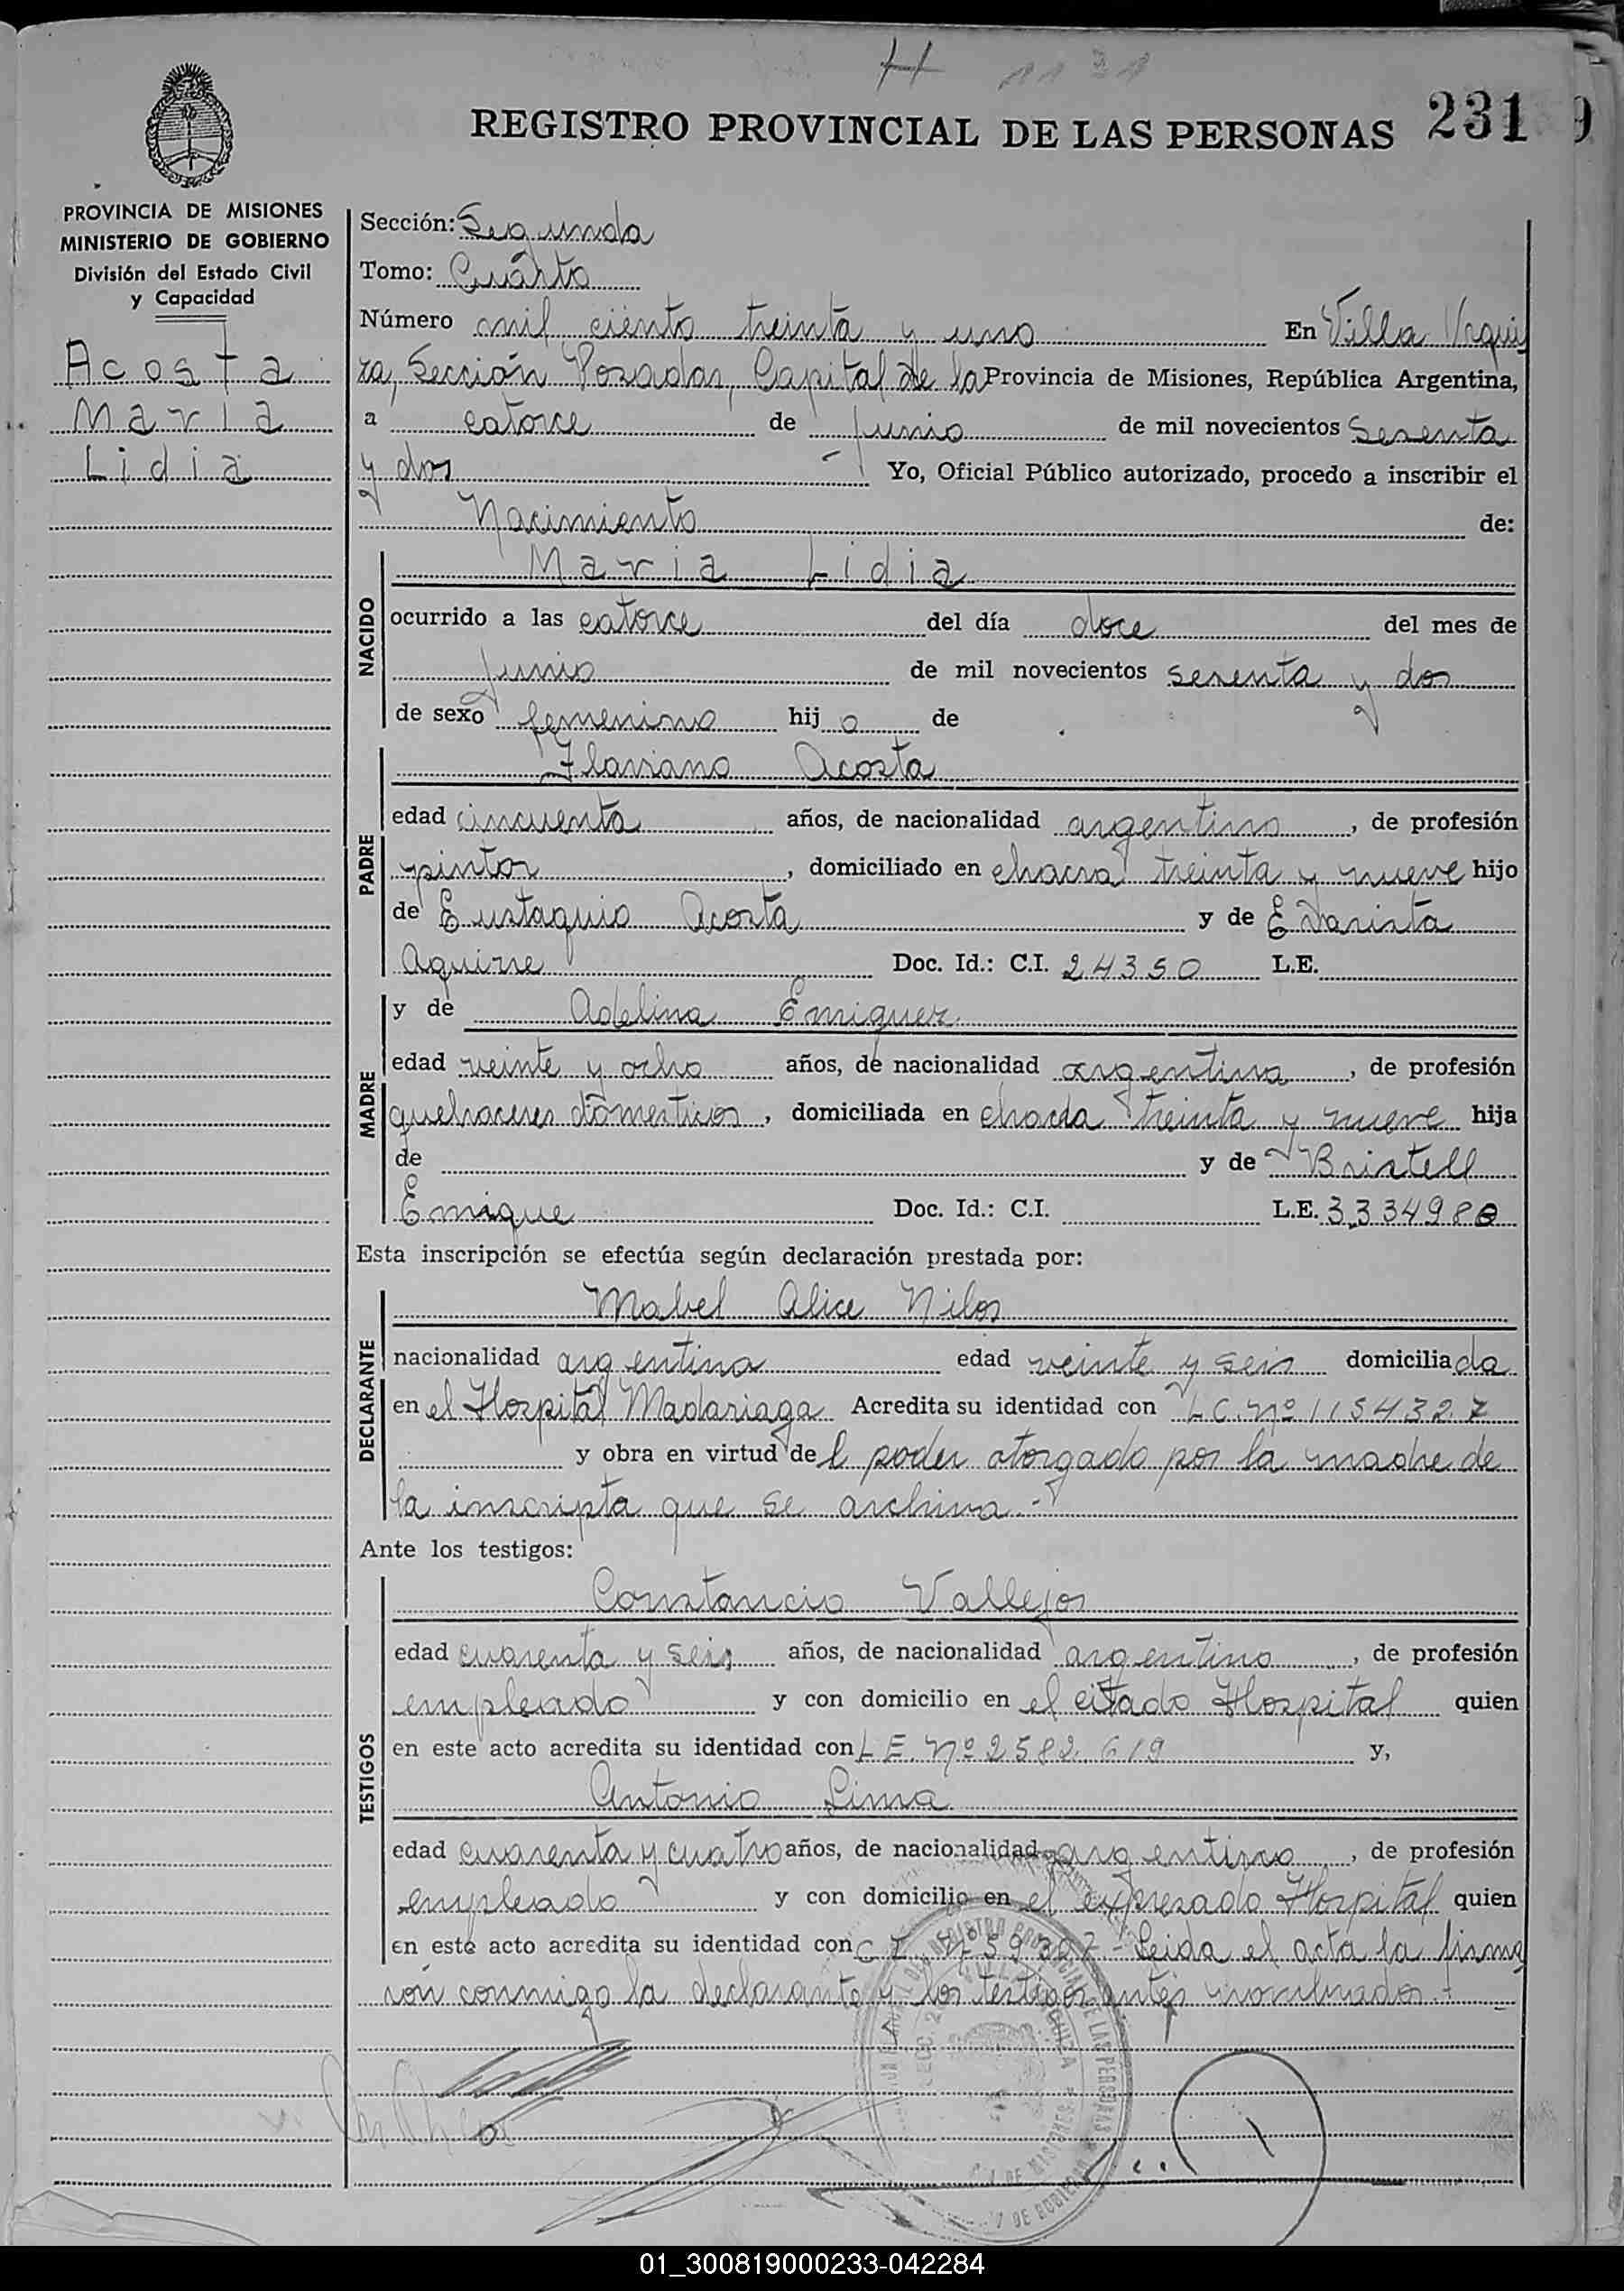 H 1131
REGISTRO PROVINCIAL DE LAS PERSONAS 231
PROVINCIA DE MISIONES
MINISTERIO DE GOBIERNO
División del Estado Civil
y Capacidad
Acosta
Maria
Lidia
Sección: Segunda
Tomo: Cuarto
Número mil ciento treinta y uno En Villa Urqui
za, Sección Posadas, Capital de la Provincia de Misiones, República Argentina,
a catorce de junio de mil novecientos sesenta
y dos Yo, Oficial Público autorizado, procedo a inscribir el
Nacimiento de:
NACIDO
Maria Lidia
ocurrido a las catorce del día doce del mes de
junio de mil novecientos sesenta y dos
de sexo femenino hij a de
PADRE
Flaviano Acosta
edad cincuenta años, de nacionalidad argentino, de profesión
pintor, domiciliado en chacra treinta y nueve hijo
de Eustaquio Acosta y de Evarista
Aguirre Doc. Id.: C.I. 24350 L.E.
MADRE
y de Adelina Emiguez
edad veinte y ocho años, de nacionalidad argentina, de profesión
quehaceres domesticos, domiciliada en chacra treinta y nueve hija
de y de Bristell
Emique Doc. Id.: C.I. L.E. 3.334980
Esta inscripción se efectúa según declaración prestada por:
DECLARANTE
Mabel Alice Nilos
nacionalidad argentina edad veinte y seis domiciliada
en el Hospital Madariaga Acredita su identidad con L C. Nº 1154327
y obra en virtud del poder otorgado por la madre de
la inscripta que se archiva.-
Ante los testigos:
TESTIGOS
Constancio Vallejos
edad cuarenta y seis años, de nacionalidad argentino, de profesión
empleado y con domicilio en el citado Hospital quien
en este acto acredita su identidad con L E. Nº 2582.619 y,
Antonio Lima
edad cuarenta y cuatro años, de nacionalidad argentino, de profesión
empleado y con domicilio en el expresado Hospital quien
en este acto acredita su identidad con C I. Leida el acta la firma
rón conmigo la declarante y los testigos antes nombrados.-
01_300819000233-042284